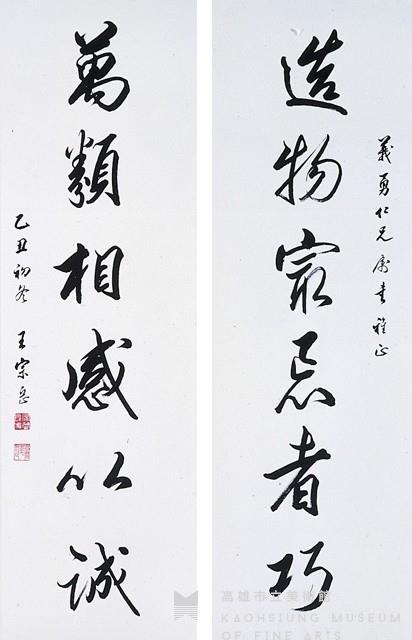 義勇仁兄属書雅正
造物㝡忌者巧
萬類相感以誠
乙丑初冬 王宗岳
高雄市立美術館
KAOHSIUNG MUSEUM
OF FINE ARTS